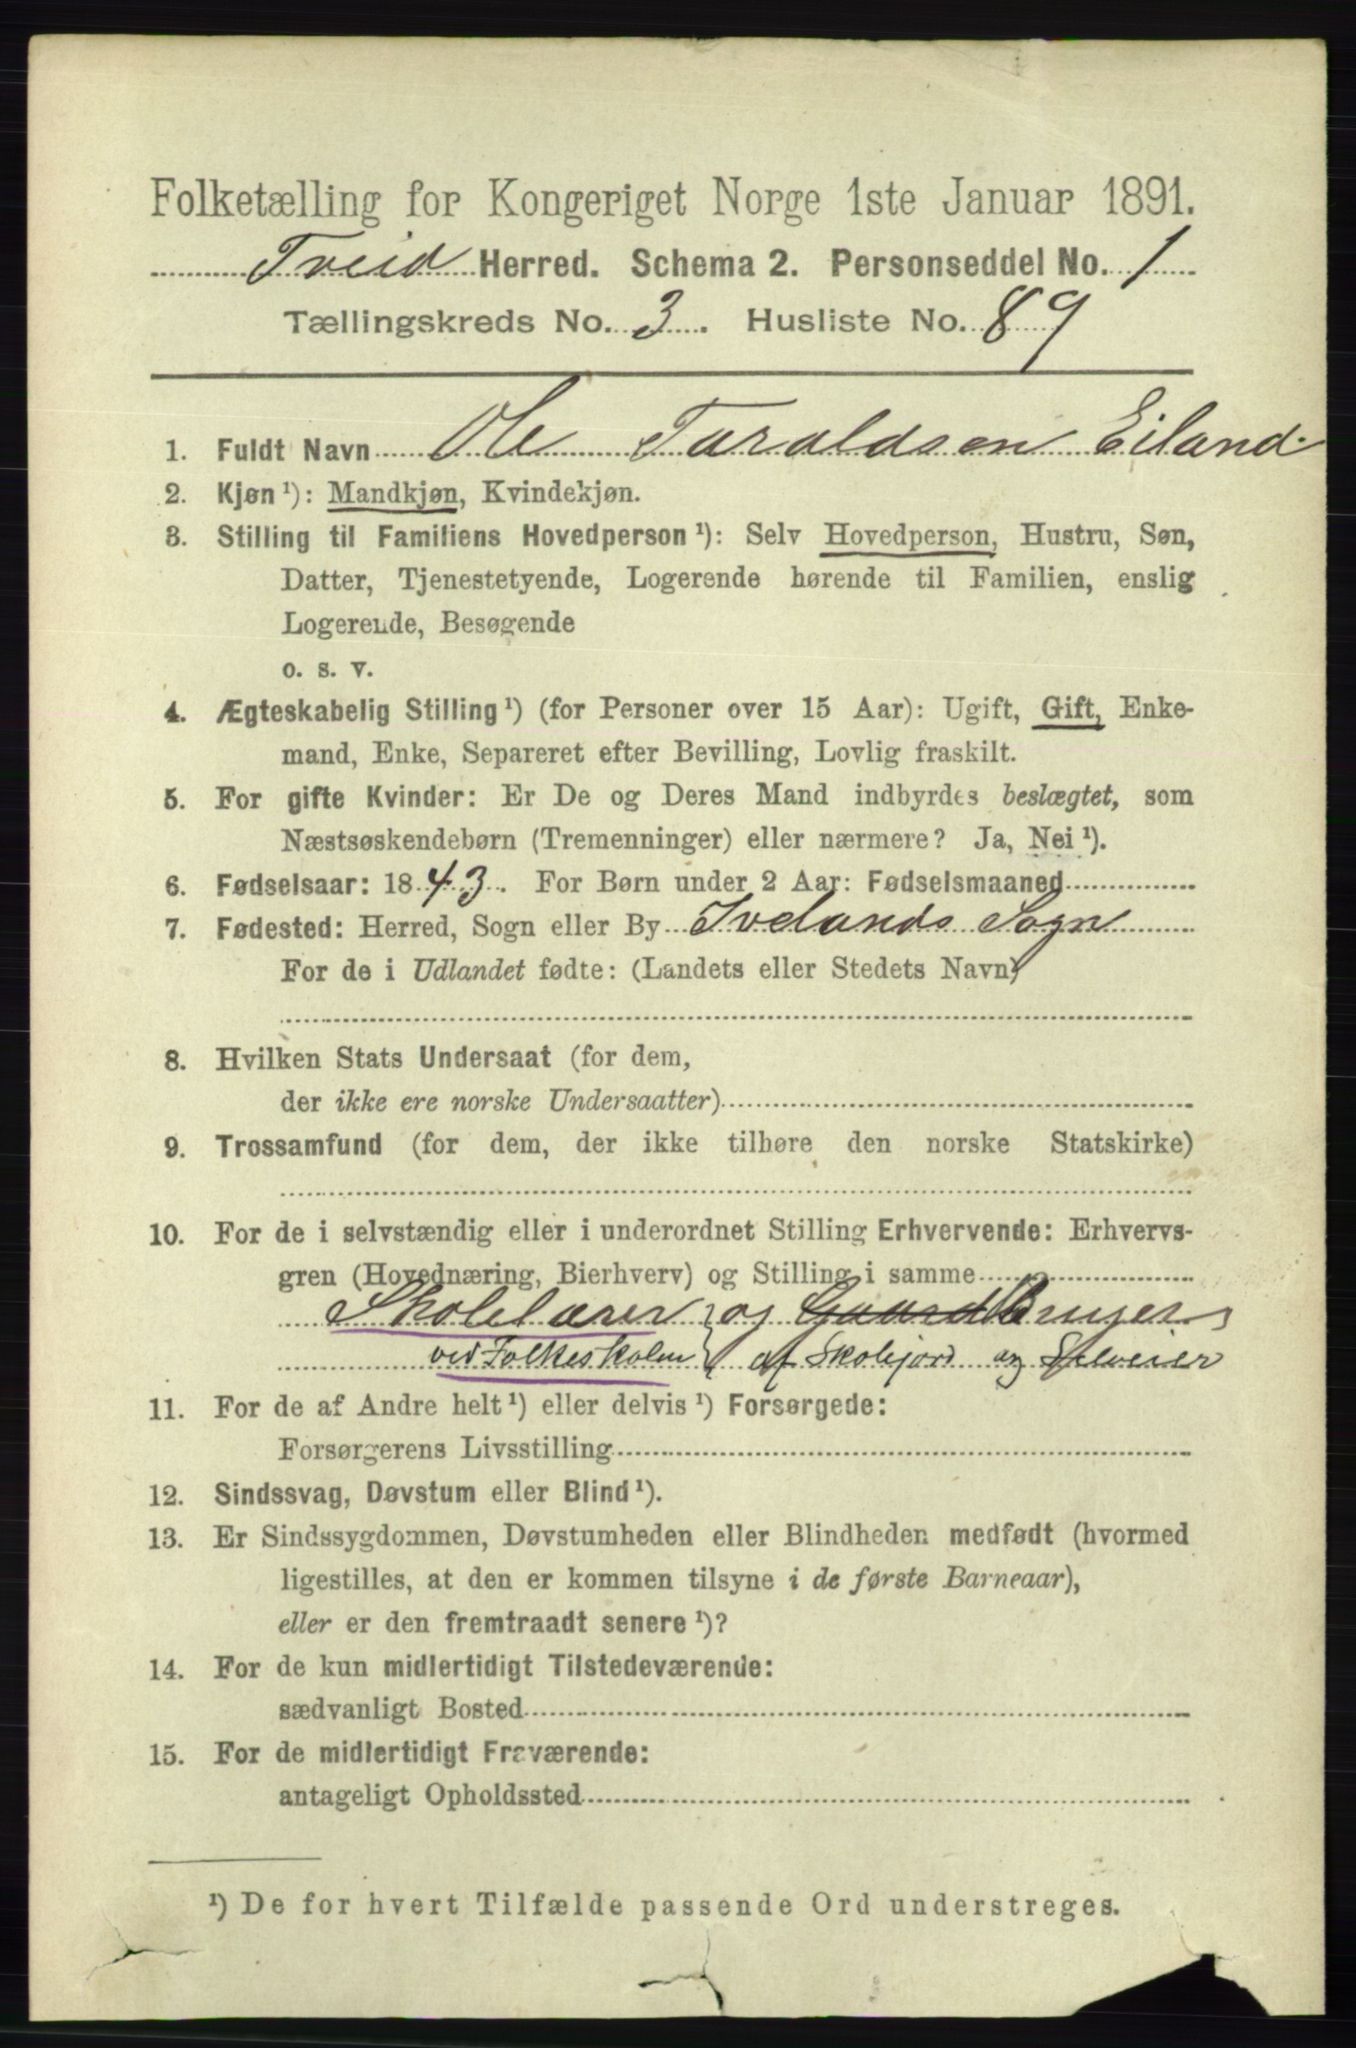 Folketælling for Kongeriget Norge 1ste Januar 1891.
Tveid Herred. Schema 2. Personseddel No. 1
Tællingskreds No. 3. Husliste No. 89
1. Fuldt Navn Ole Taraldsen Eiland.
2. Kjøn ¹): Mandkjøn, Kvindekjøn.
3. Stilling til Familiens Hovedperson ¹): Selv Hovedperson, Hustru, Søn,
Datter, Tjenestetyende, Logerende hørende til Familien, enslig
Logerende, Besøgende
o. s. v.
4. Ægteskabelig Stilling ¹) (for Personer over 15 Aar): Ugift, Gift, Enke-
mand, Enke, Separeret efter Bevilling, Lovlig fraskilt.
5. For gifte Kvinder: Er De og Deres Mand indbyrdes beslægtet, som
Næstsøskendebørn (Tremenninger) eller nærmere? Ja, Nei ¹).
6. Fødselsaar: 1843. For Børn under 2 Aar: Fødselsmaaned
7. Fødested: Herred, Sogn eller By Ivelands Sogn
For de i Udlandet fødte: (Landets eller Stedets Navn)
8. Hvilken Stats Undersaat (for dem,
der ikke ere norske Undersaatter)
9. Trossamfund (for dem, der ikke tilhøre den norske Statskirke)
10. For de i selvstændig eller i underordnet Stilling Erhvervende: Erhvervs-
gren (Hovednæring, Bierhverv) og Stilling i samme
Skolelærer og Gaard Bruger
ved Folkeskolen af Skolejord og Selveier
11. For de af Andre helt ¹) eller delvis ¹) Forsørgede:
Forsørgerens Livsstilling
12. Sindssvag, Døvstum eller Blind ¹).
13. Er Sindssygdommen, Døvstumheden eller Blindheden medfødt (hvormed
ligestilles, at den er kommen tilsyne i de første Barneaar),
eller er den fremtraadt senere ¹)?
14. For de kun midlertidigt Tilstedeværende:
sædvanligt Bosted
15. For de midlertidigt Fraværende:
antageligt Opholdssted
¹) De for hvert Tilfælde passende Ord understreges.